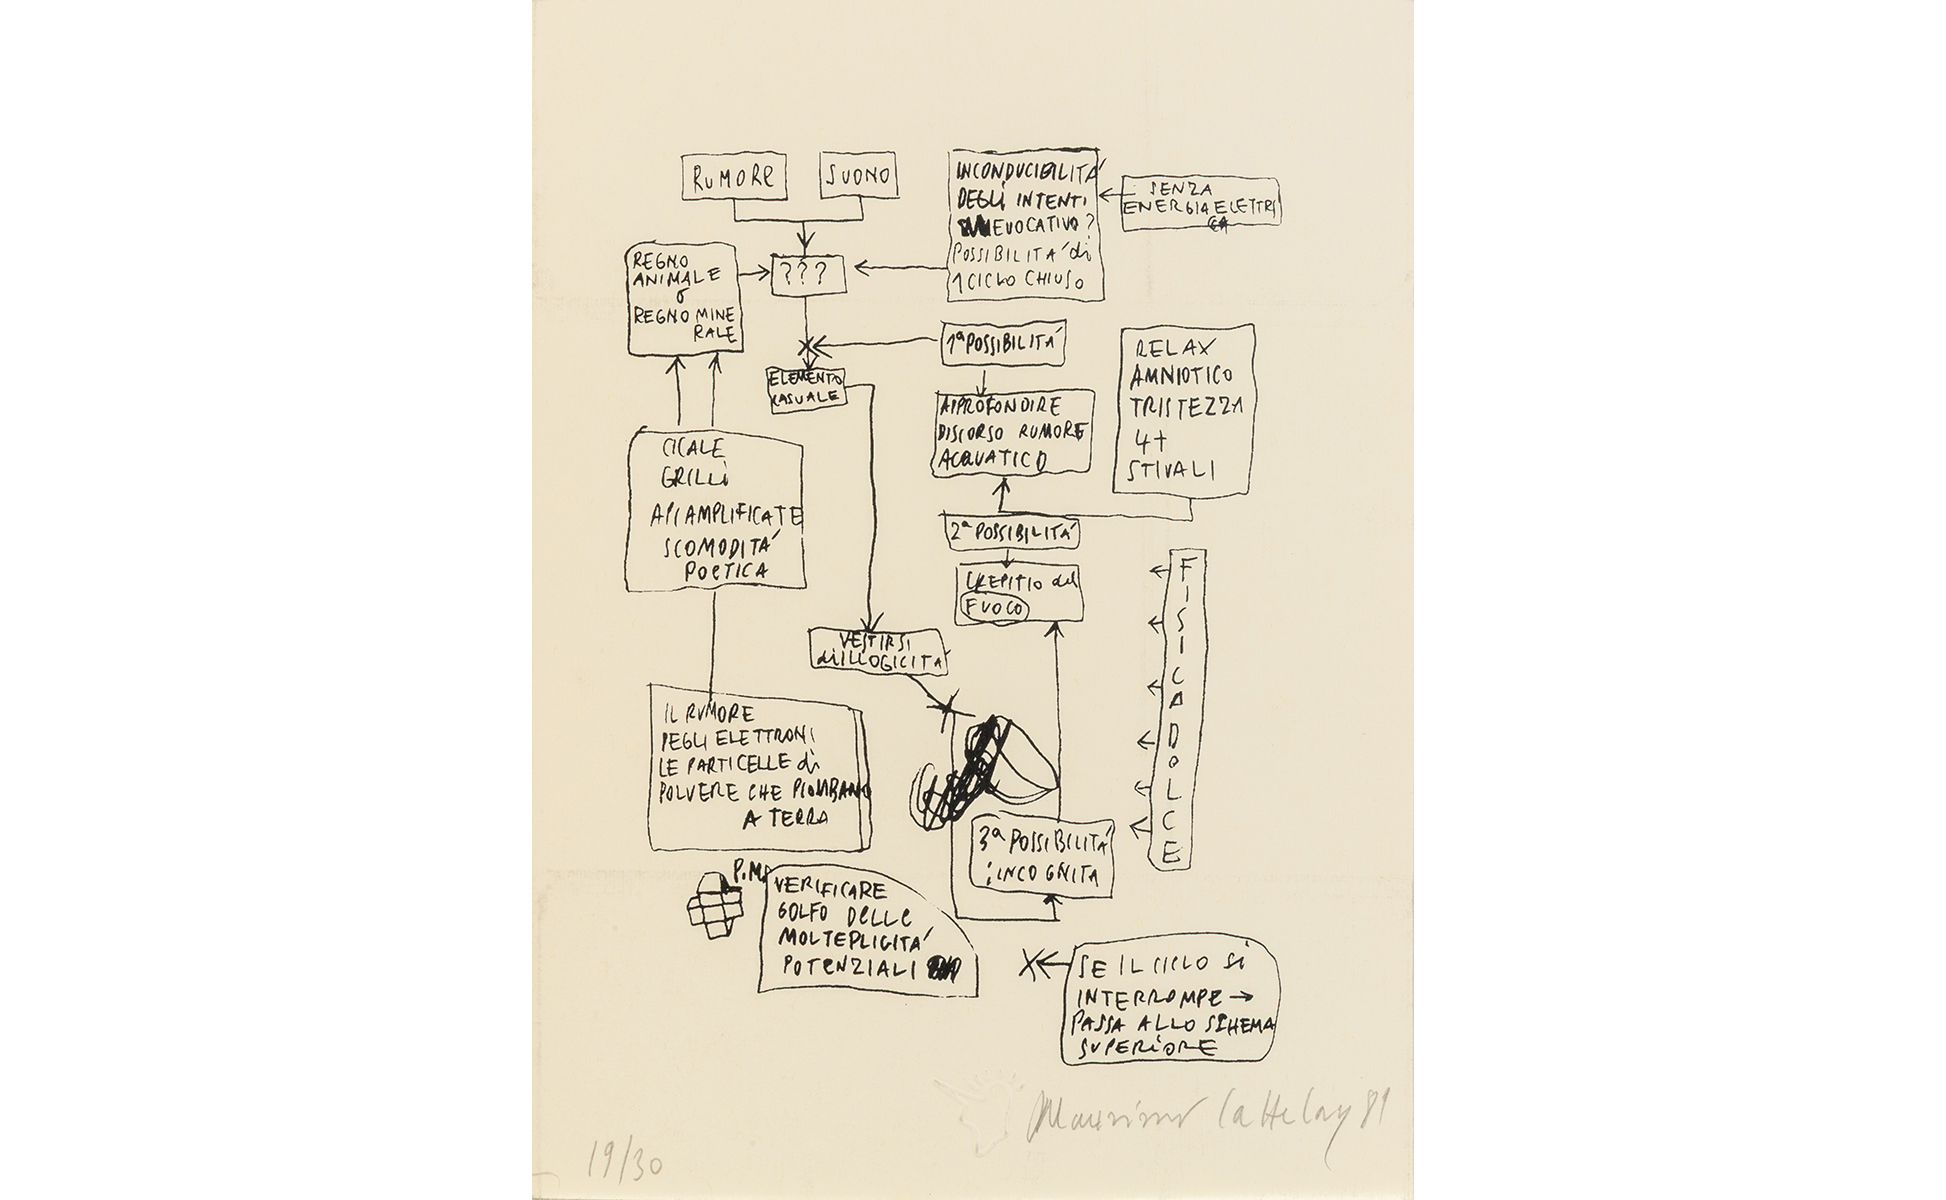 RUMORE
SUONO
INCONDUCIBILITÁ
DEGLI INTENTI
EVOCATIVO?
POSSIBILITÁ di
1 CICLO CHIUSO
SENZA
ENERGIA ELETTRI
CA
REGNO
ANIMALE
o
REGNO MINE
RALE
???
1ª POSSIBILITÁ
ELEMENTO
CASUALE
APPROFONDIRE
DISCORSO RUMORE
ACQUATICO
RELAX
AMNIOTICO
TRISTEZZA
4+
STIVALI
CICALE
GRILLI
API AMPLIFICATE
SCOMODITÁ
POETICA
2ª POSSIBILITÁ
CREPITIO del
FUOCO
FISICA DOLCE
VESTIRSI
di ILLOGICITÁ
IL RUMORE
DEGLI ELETTRONI
LE PARTICELLE di
POLVERE CHE PIOMBANO
A TERRA
3ª POSSIBILITÁ
: INCOGNITA
P.M.
VERIFICARE
GOLFO DELLE
MOLTEPLICITÁ
POTENZIALI
SE IL CICLO SI
INTERROMPE →
PASSA ALLO SCHEMA
SUPERIORE
Cattelan 81
19/30